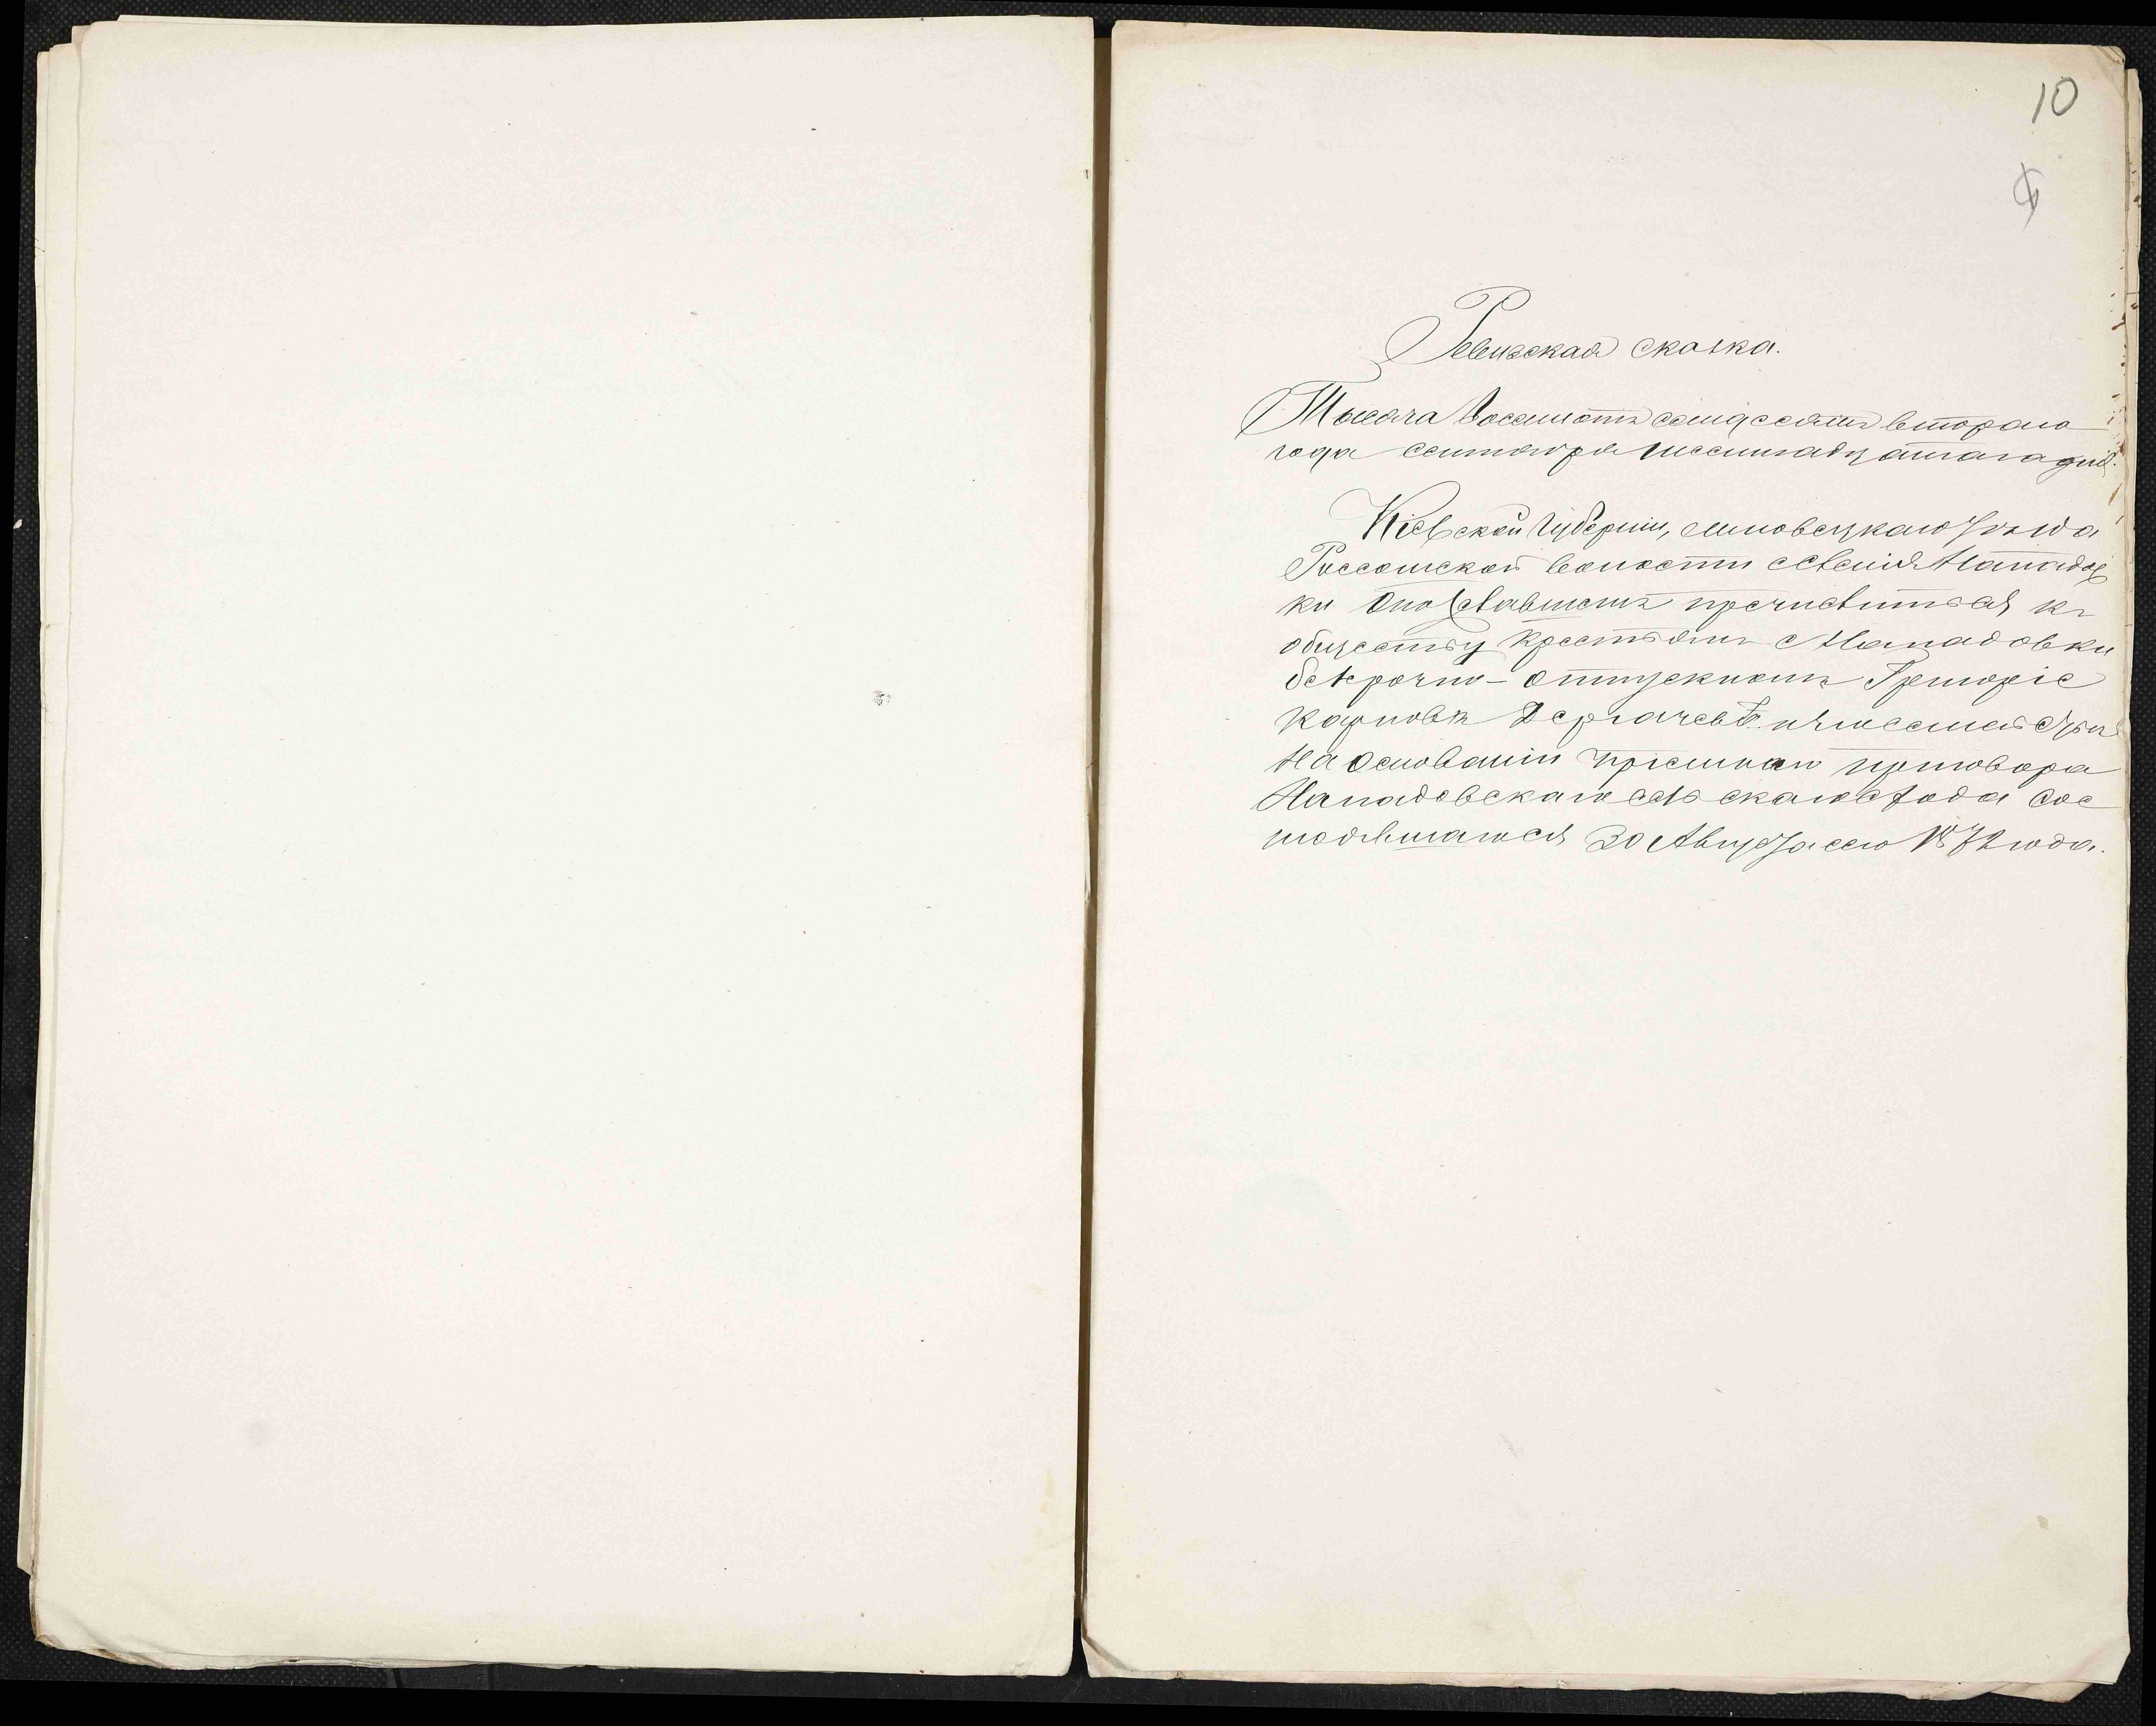 10
Ревизская сказка.
Тысяча восемсотъ семдесятъ втораго
года сентября шеснадцатаго дня.
Кіевской Губерніи, Липовецкаго уѣзда
Россошской волости селенія Нападов
ки о пожелавшемъ причислиться къ
обществу крестьянъ с Нападовки
безсрочно-отпускномъ Григоріе
Карповѣ Дергачевѣ и его семействѣ
на основаніи пріемнаго приговора
Нападовскаго сельскаго схода сос
тоявшагося 30 Августа сего 1872 года.